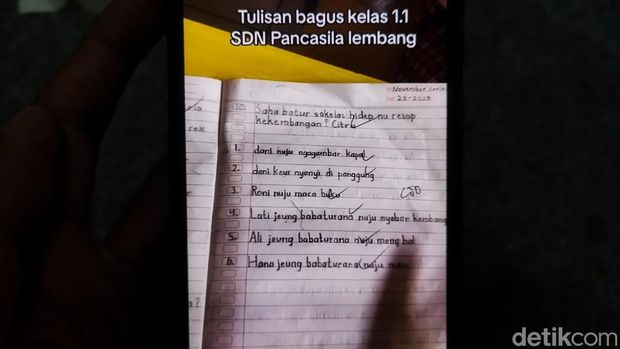 Tulisan bagus kelas 1.1
SDN Pancasila lembang
November senin
20-2023
10. Saha batur sakelas hidep nu resep
kekembangan? Citra
rek
1. dani nuju ngagambar kapal
2. dani keur nyanyi di panggung
3. Roni nuju maca buku
4. Lati jeung babaturana nuju nyebor kembang
5. Ali jeung babaturana nuju meng bal
6. Hana jeung babaturana nuju main
?
detikcom